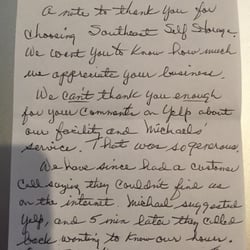 A note to thank you for
choosing Southeast Self Storage.
We want you to know how much
we appreciate your business.
We can't thank you enough
for your comments on Yelp about
our facility and Michaels'
service. That was so generous.
We have since had a customer
call saying they couldn't find us
on the internet. Michael suggested
Yelp, and 5 min later they called
back wanting to know our hours.